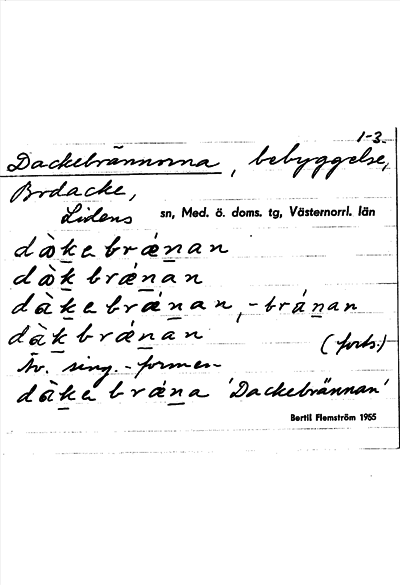 1-3.
Dackebrännorna, bebyggelse,
Brdacke,
Lidens sn, Med. ö. doms. tg, Västernorrl. län
dàkebrǽnan
dàk brǽnan
dàkebrǽnan, -bránan
dàkbrǽnan
(forts.)
Äv. sing.-formen
dàkebrǽna 'Dackebrännan'
Bertil Flemström 1955